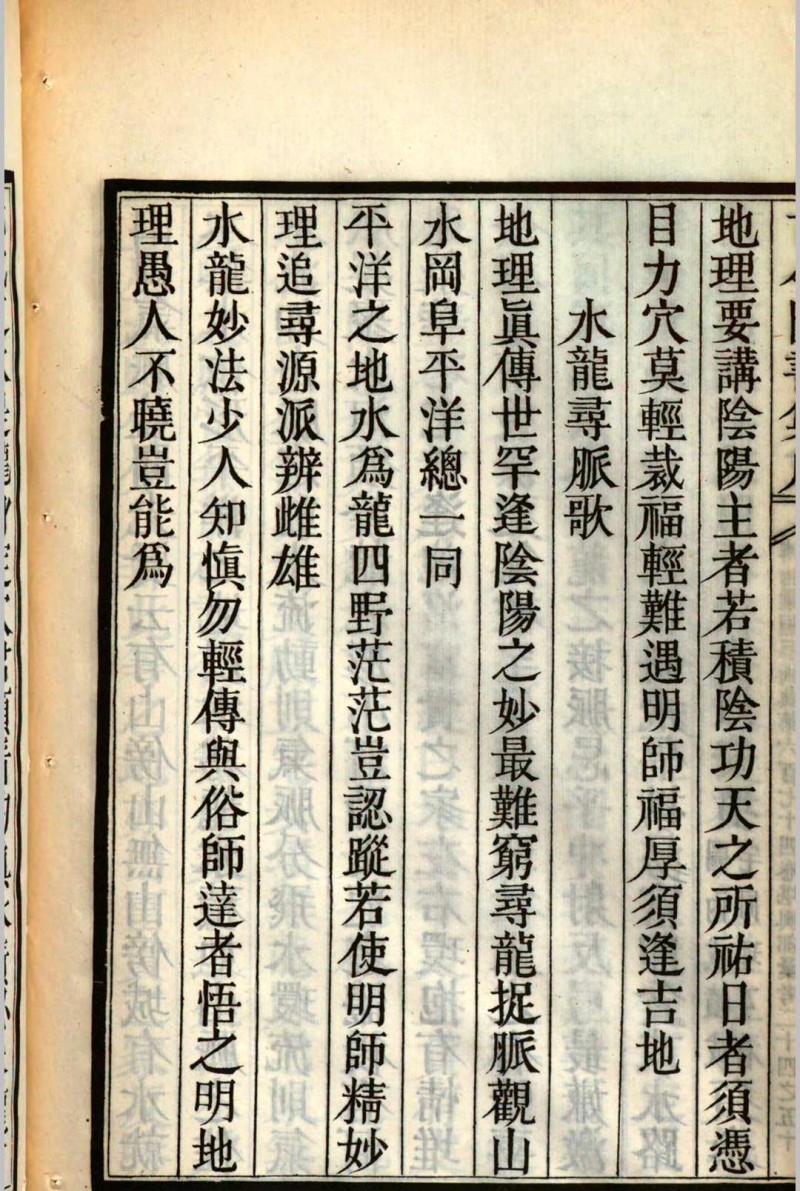 地理要講陰陽主者若積陰功天之所祐日者須憑
目力穴莫輕裁福輕難遇明師福厚須逢吉地
水龍尋脈歌
地理眞傳世罕逢陰陽之妙最難窮尋龍捉脈觀山
水岡阜平洋總一同
平洋之地水爲龍四野茫茫豈認蹤若使明師精妙
理追尋源派辨雌雄
水龍妙法少人知愼勿輕傳與俗師達者悟之明地
理愚人不曉豈能爲